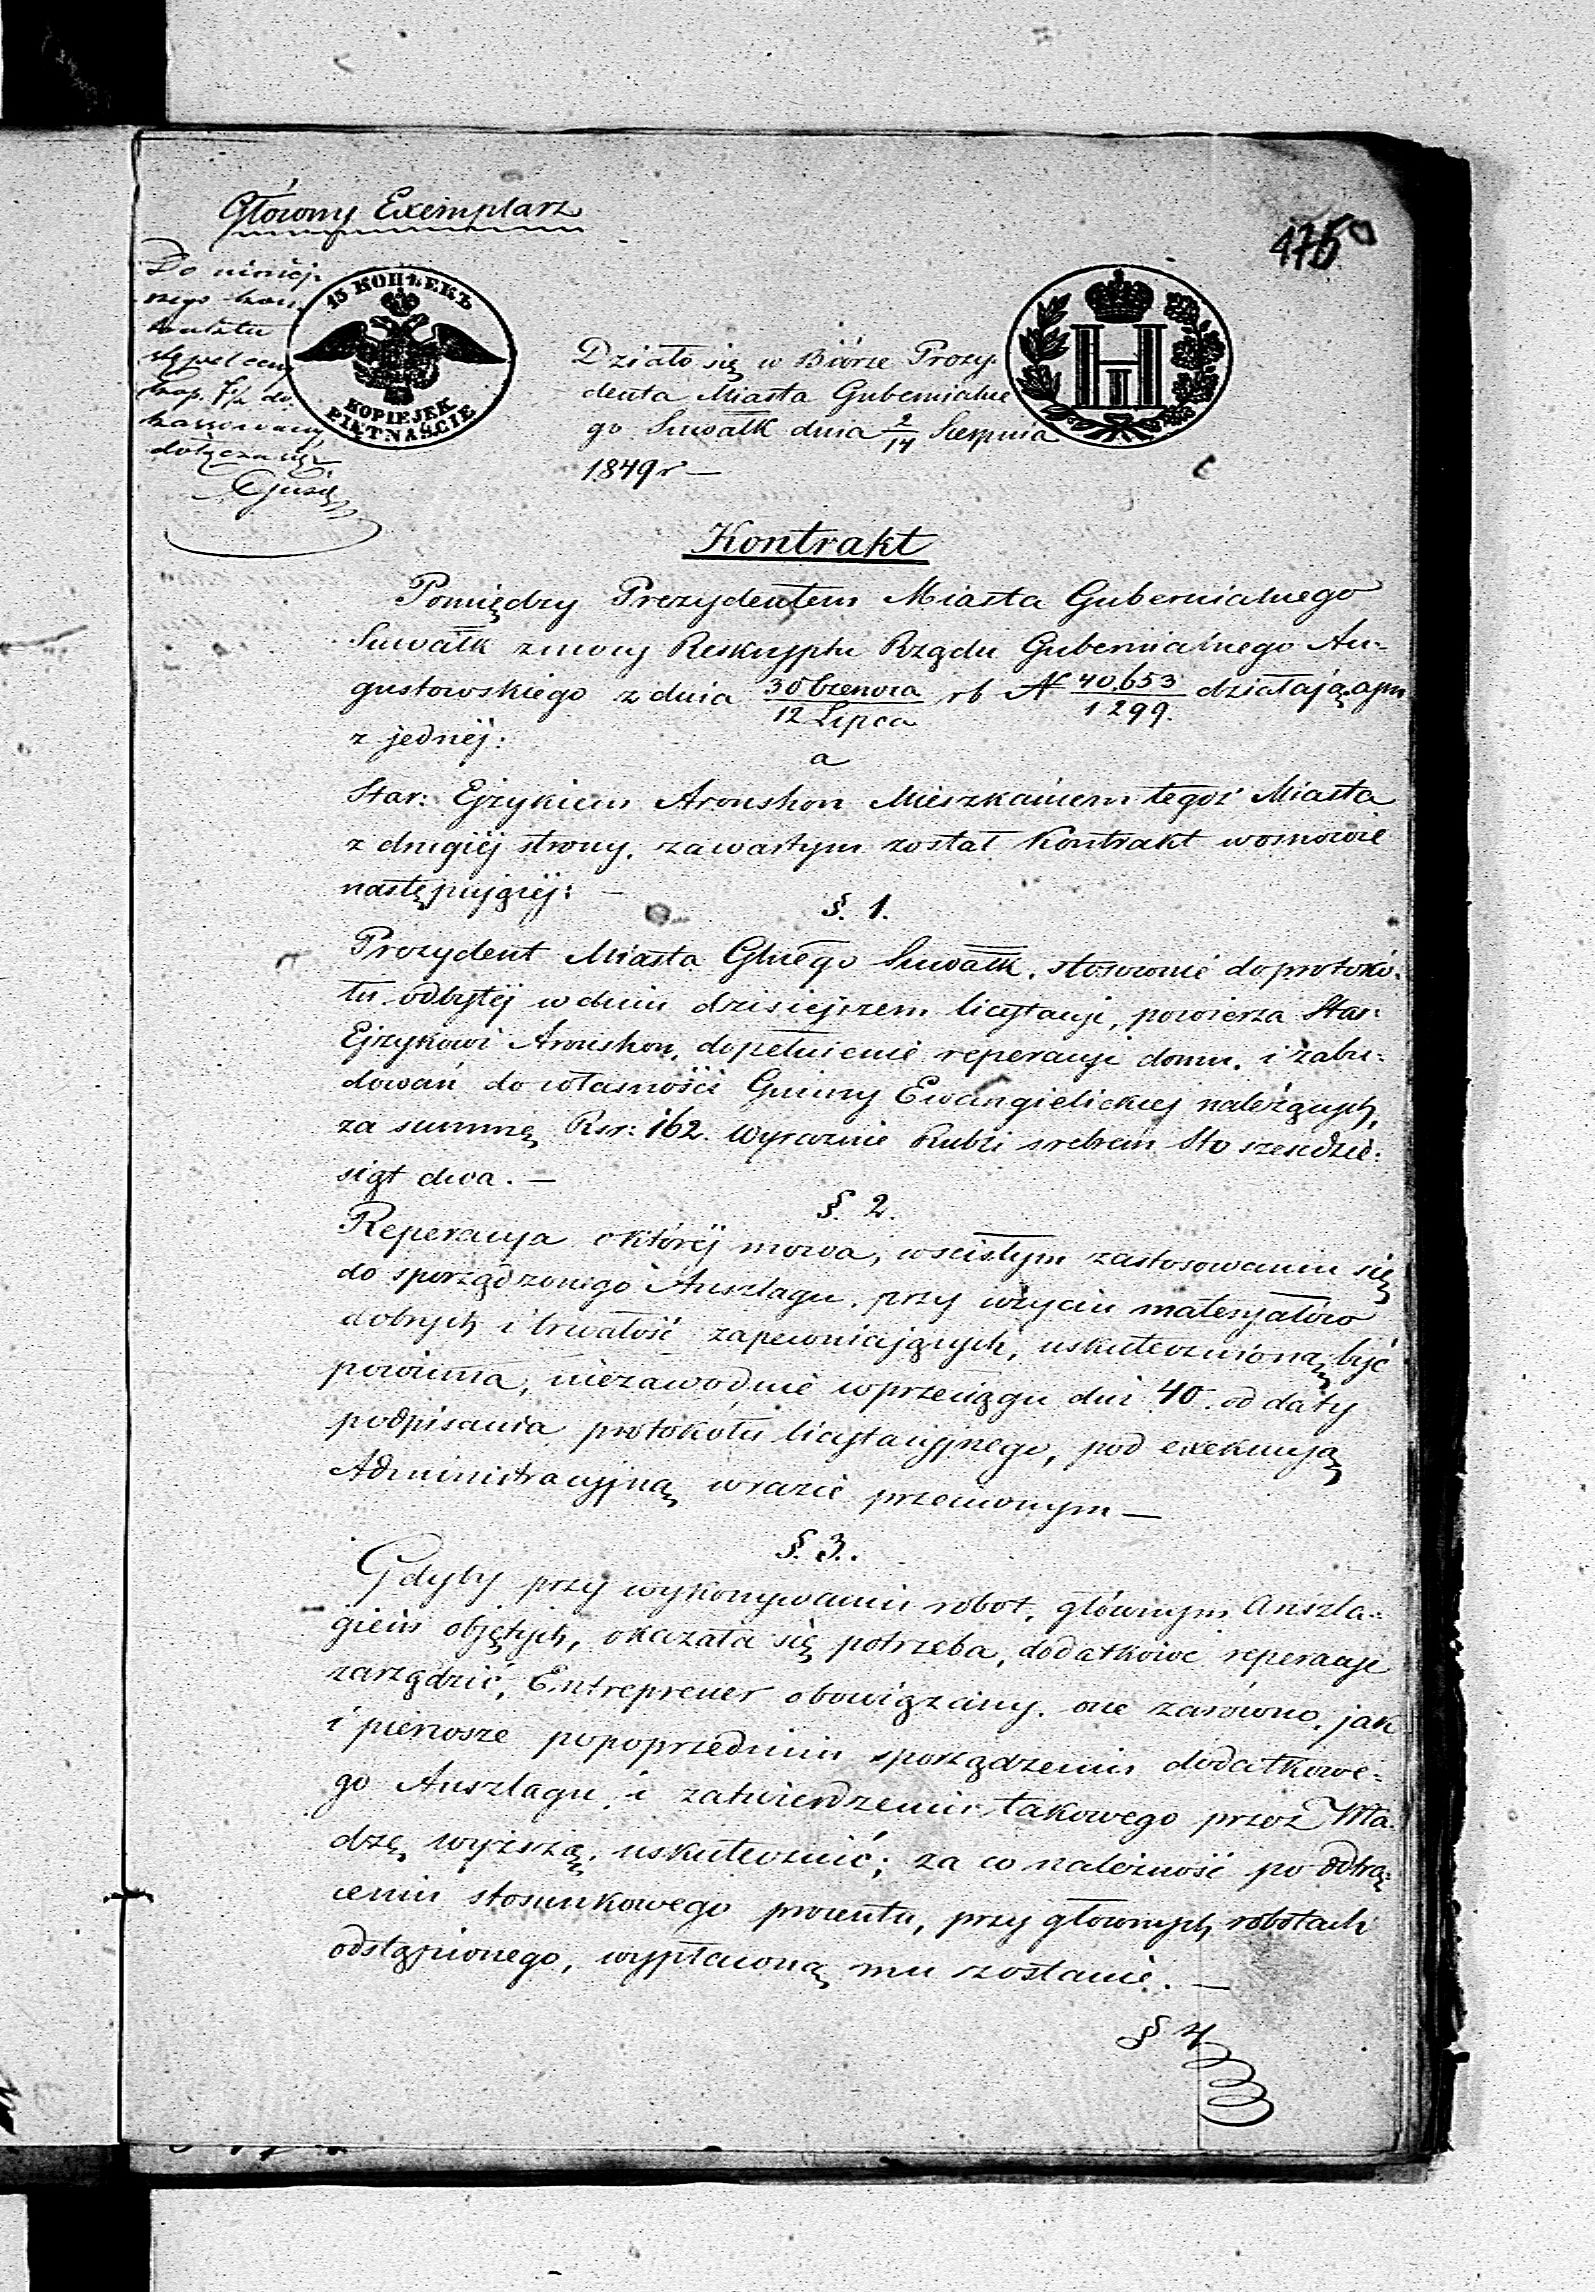 Główny Exemplarz
175
Do niniej-
szego kon-
traktu
stępel ceny
kop. 7½ do
kassowany
dołącza się
15 КОПѢЕКЪ
KOPIEJEK
PIĘTNAŚCIE
Działo się w Biórze Prezy-
denta Miasta Gubernialne
go Suwałk dnia 2/14 Sierpnia
1849 r —
Kontrakt
Pomiędzy Prezydentem Miasta Gubernialnego
Suwałk z mocy Reskryptu Rządu Gubernialnego Au-
gustowskiego z dnia 30 Czerwca/12 Lipca r b N 40.653/1299. działającym
z jednéj:
a
Star: Ejzykiem Aronshon Mieszkańcem tegoż Miasta
z drugiéj strony, zawartym został Kontrakt w osnowie
następującéj: —
§. 1.
Prezydent Miasta Glnego Suwałk, stosownie do protokó-
łu odbytéj w dniu dzisiejszem licytacyi, powierza Star:
Ejzykowi Aronshon, dopełnienie reperacyi domu, i zabu-
dowań do własności Gminy Ewangielickiej należących,
za summę Rsr: 162. Wyraznie Rubli srebrem Sto szesćdzie-
siąt dwa. —
§. 2.
Reperacya o któréj mowa, w scisłym zastosowaniu się
do sporządzonego Anszlagu, przy użyciu materyałów
dobrych i trwałość zapewniających, uskutecznioną być
powinna, niezawodnie w przeciągu dni 40. od daty
podpisania protokółu licytacyjnego, pod exekucyją
Administracyjną w razie przeciwnym —
§. 3.
Gdyby przy wykonywaniu robot, głównym Anszla-
giem objętych, okazała się potrzeba, dodatkowe reperacye
zarządzić, Entreprener obowiązany, one zarówno, jak
i pierwsze po poprzedniem sporządzeniu dodatkowe-
go Anszlagu, i zatwierdzeniu takowego przez Wła-
dzę wyższą, uskutecznić; za co należność po odtrą-
ceniu stosunkowego procentu, przy głownych robotach
odstąpionego, wypłaconą mu zostanie. —
§ 4